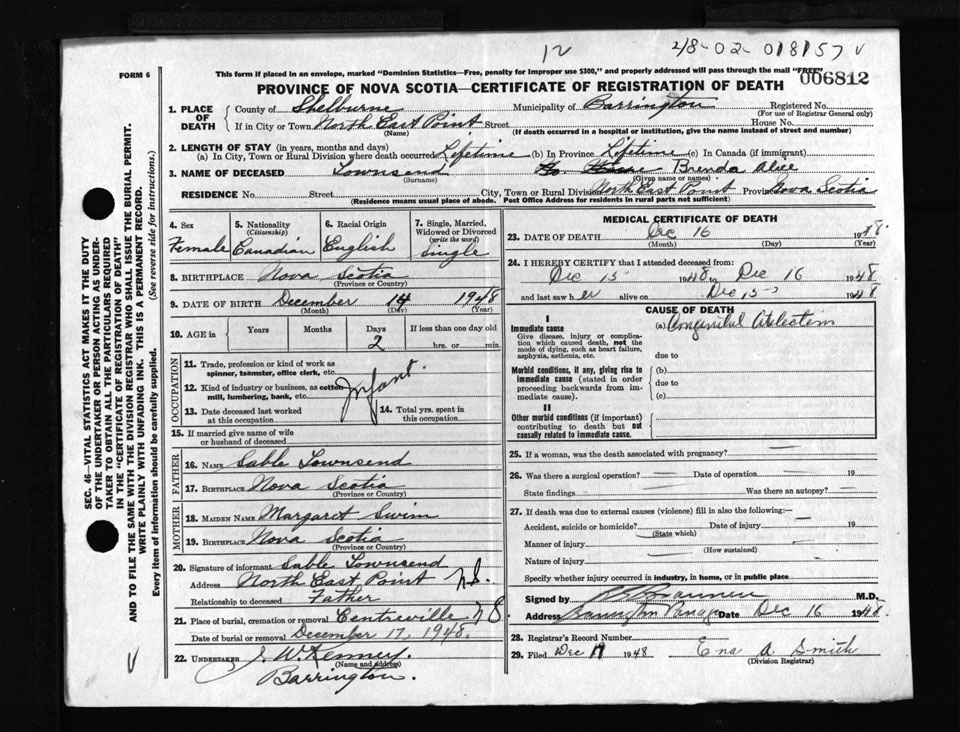 12
218-02-018157 v
FORM 6
This form if placed in an envelope, marked "Dominion Statistics—Free, penalty for improper use $300," and properly addressed will pass through the mail "FREE"
006812
PROVINCE OF NOVA SCOTIA—CERTIFICATE OF REGISTRATION OF DEATH
1. PLACE OF DEATH
County of Shelburne Municipality of Barrington Registered No.
(For use of Registrar General only)
If in City or Town North East Point Street House No.
(Name) (If death occurred in a hospital or institution, give the name instead of street and number)
2. LENGTH OF STAY (in years, months and days)
(a) In City, Town or Rural Division where death occurred Lifetime (b) In Province Lifetime (c) In Canada (if immigrant)
3. NAME OF DECEASED Townsend Brenda Alice
(Surname) (Given name or names)
RESIDENCE No. Street City, Town or Rural Division North East Point Province Nova Scotia
(Residence means usual place of abode. Post Office Address for residents in rural parts not sufficient)
4. Sex
Female
5. Nationality
(Citizenship)
Canadian
6. Racial Origin
English
7. Single, Married, Widowed or Divorced
(write the word)
Single
8. BIRTHPLACE Nova Scotia
(Province or Country)
9. DATE OF BIRTH December 14 1948
(Month) (Day) (Year)
10. AGE in Years Months Days If less than one day old
2 hrs. or min.
OCCUPATION
11. Trade, profession or kind of work as
spinner, teamster, office clerk, etc.
12. Kind of industry or business, as cotton
mill, lumbering, bank, etc.
Infant.
13. Date deceased last worked
at this occupation
14. Total yrs. spent in
this occupation
15. If married give name of wife
or husband of deceased
FATHER
16. NAME Sable Townsend
17. BIRTHPLACE Nova Scotia
(Province or Country)
MOTHER
18. MAIDEN NAME Margaret Swim
19. BIRTHPLACE Nova Scotia
(Province or Country)
20. Signature of informant Sable Townsend
Address North East Point N.S.
Relationship to deceased Father
21. Place of burial, cremation or removal Centreville NS
Date of burial or removal December 17, 1948.
22. UNDERTAKER J. W. Kenney.
(Name and address)
Barrington.
MEDICAL CERTIFICATE OF DEATH
23. DATE OF DEATH Dec 16 1948
(Month) (Day) (Year)
24. I HEREBY CERTIFY that I attended deceased from:
Dec 15 1948 to Dec 16 1948
and last saw her alive on Dec 15 1948
CAUSE OF DEATH
I
Immediate cause
Give disease, injury or complication which caused death, not the mode of dying, such as heart failure, asphyxia, asthenia, etc.
(a) Congenital
due to
Morbid conditions, if any, giving rise to immediate cause (stated in order proceeding backwards from immediate cause).
(b)
due to
(c)
II
Other morbid conditions (if important) contributing to death but not causally related to immediate cause.
25. If a woman, was the death associated with pregnancy?
26. Was there a surgical operation? Date of operation 19
State findings Was there an autopsy?
27. If death was due to external causes (violence) fill in also the following:
Accident, suicide or homicide? Date of injury 19
(State which)
Manner of injury
(How sustained)
Nature of injury
Specify whether injury occurred in industry, in home, or in public place
Signed by M.D.
Address Barrington Passage Date Dec 16 1948
28. Registrar's Record Number
29. Filed Dec 17 1948 Ena A Smith
(Division Registrar)
SEC. 46—VITAL STATISTICS ACT MAKES IT THE DUTY
OF THE UNDERTAKER OR PERSON ACTING AS UNDER-
TAKER TO OBTAIN ALL THE PARTICULARS REQUIRED
IN THE "CERTIFICATE OF REGISTRATION OF DEATH"
AND TO FILE THE SAME WITH THE DIVISION REGISTRAR WHO SHALL ISSUE THE BURIAL PERMIT.
WRITE PLAINLY WITH UNFADING INK. THIS IS A PERMANENT RECORD.
Every item of information should be carefully supplied. (See reverse side for instructions.)